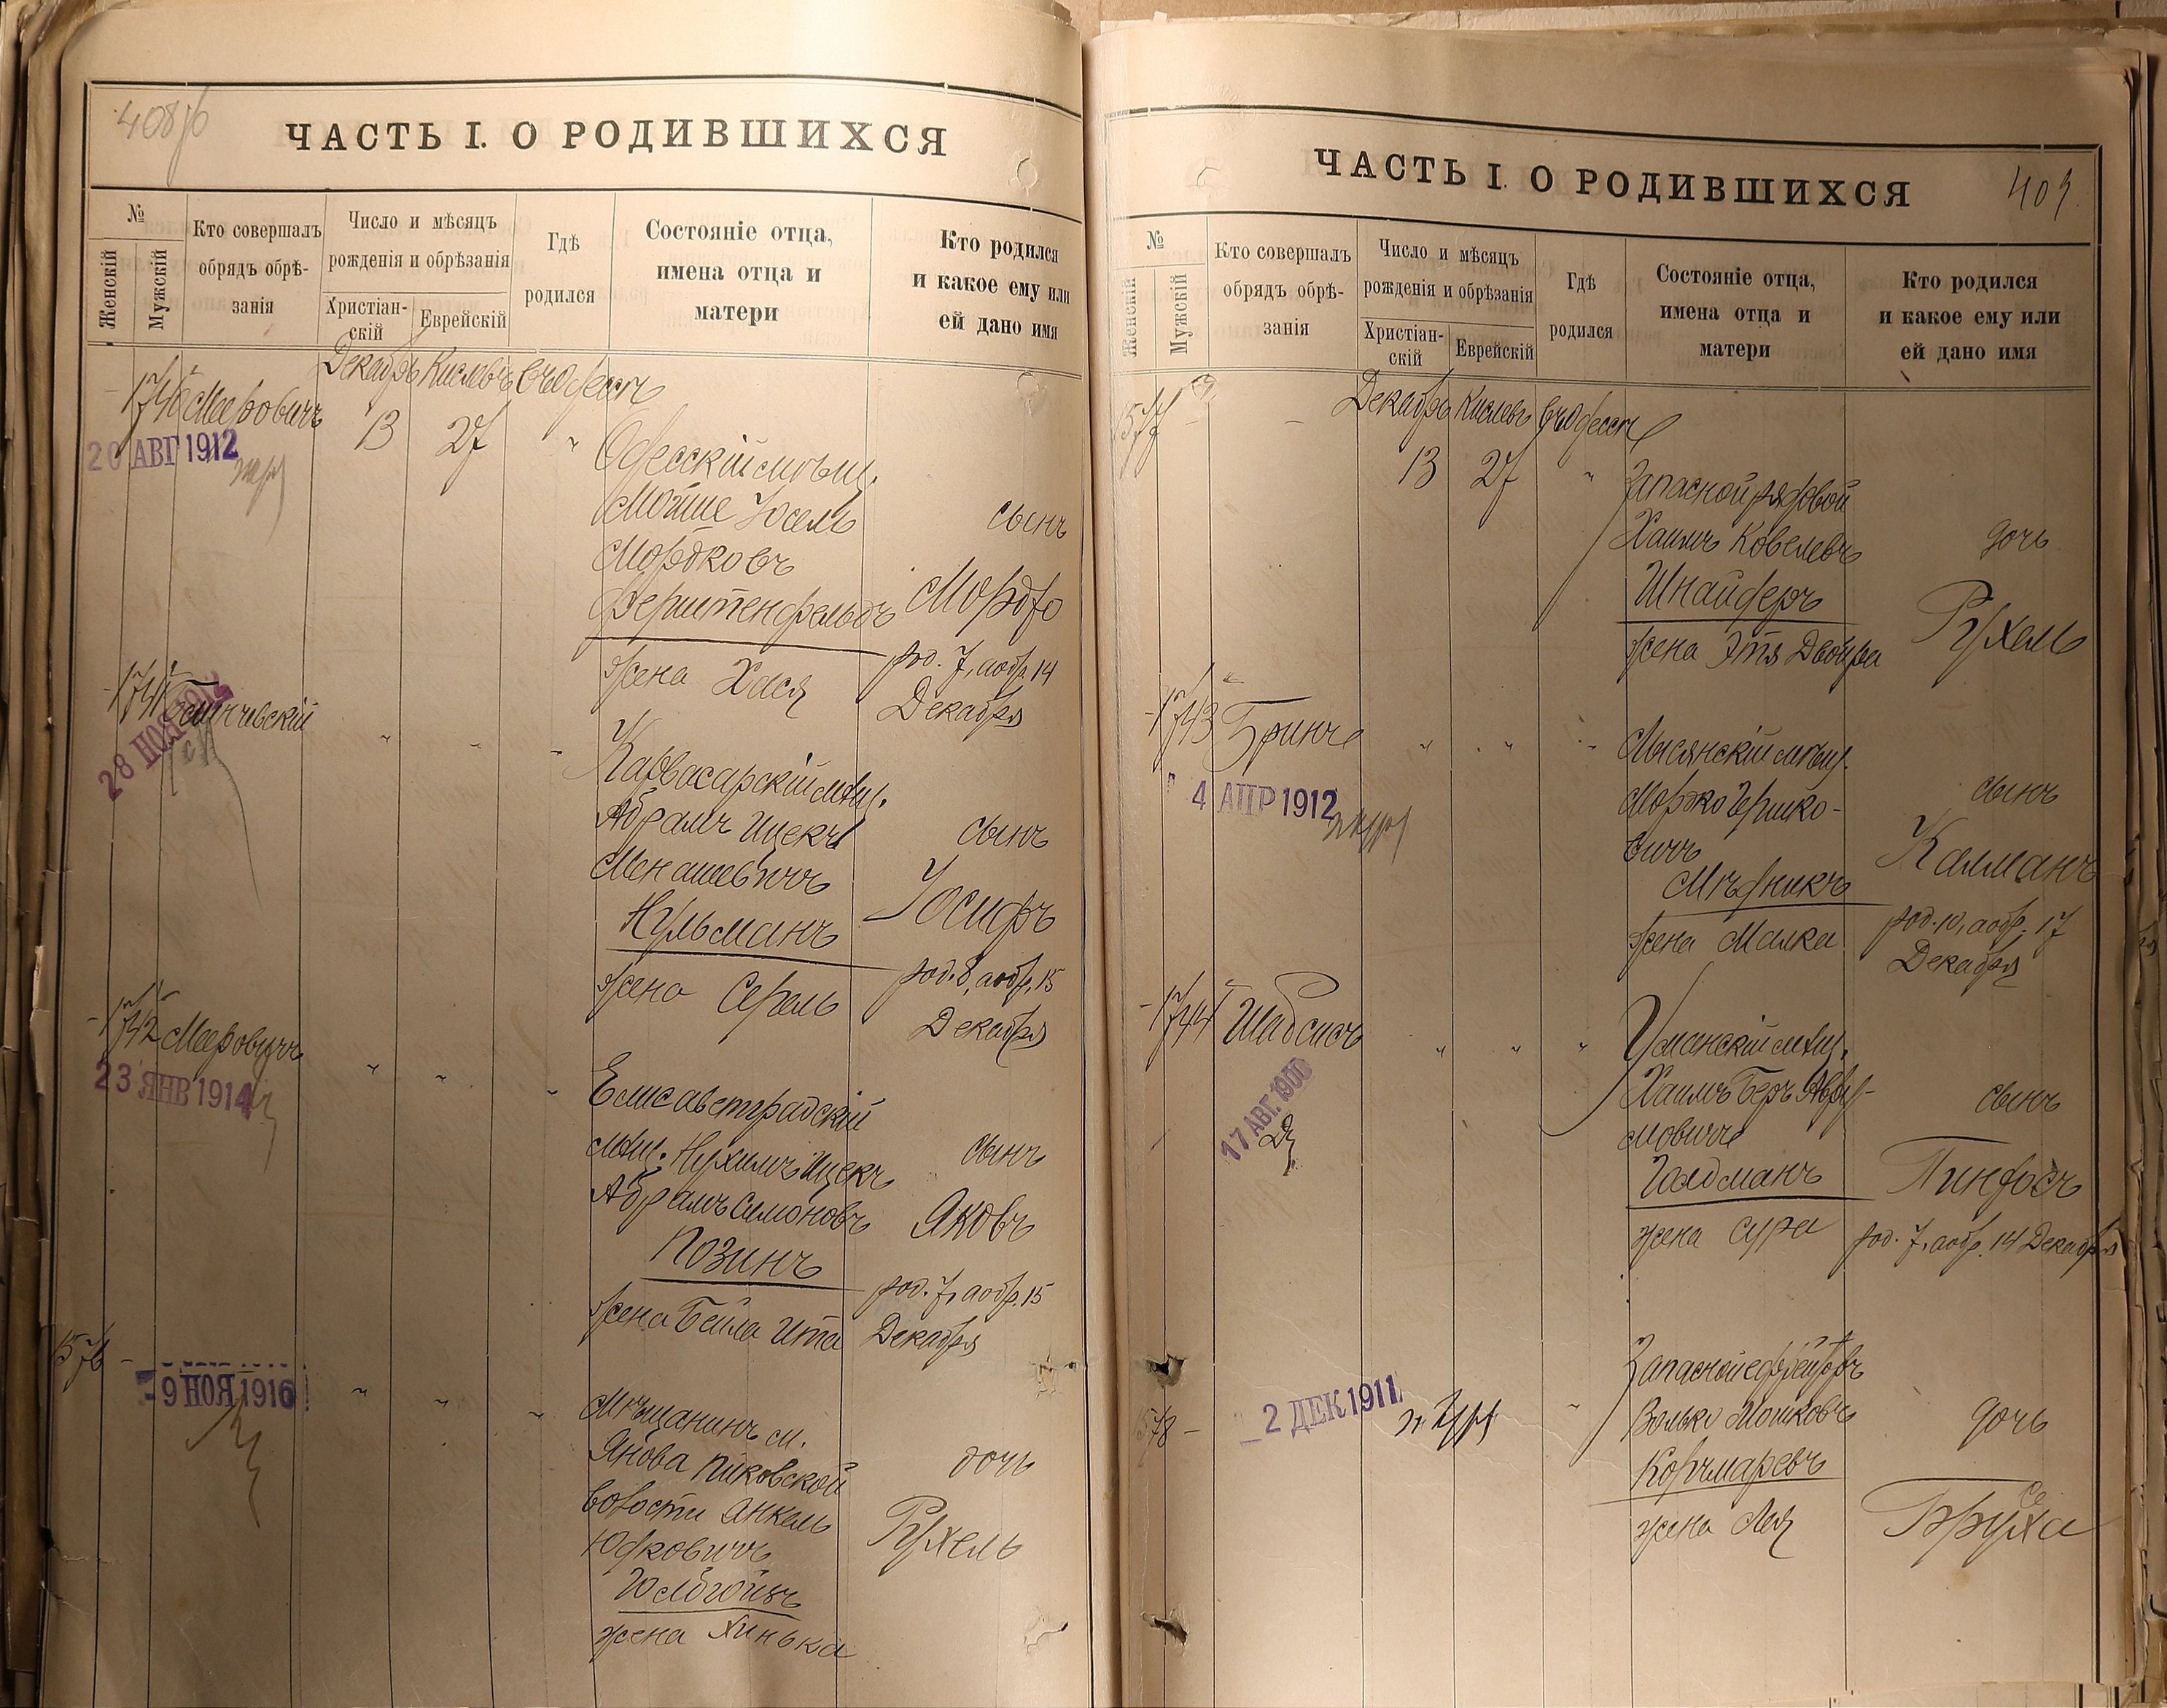 408об
ЧАСТЬ I. О РОДИВШИХСЯ
№
Женскій
Мужскій
Кто совершалъ
обрядъ обрѣ-
занія
Число и мѣсяцъ
рожденія и обрѣзанія
Христіан-
скій
Еврейскій
Гдѣ
родился
Состояніе отца,
имена отца и
матери
Кто родился
и какое ему или
ей дано имя
Декабрь Кислевъ въ Одессѣ
1740 Меровичъ 13 27 "
20 АВГ 1912
Одесскій мѣщ.
Мойше Іосель
Мордковъ
Ферштенфельдъ
жена Хася
сынъ
Мордко
род. 7, аобр. 14
Декабря
1741
28 НОЯ 1912
Карвасарскій мѣщ.
Абрамъ Ицекъ
Менашевичъ
Нульманъ
жена Серель
сынъ
Іосифъ
род. 8, аобр. 15
Декабря
1742 Меровичъ
23 ЯНВ 1914
Елисаветградскій
мѣщ. Нухимъ Ицекъ
Абрамъ Симоновъ
Позинъ
жена Бейла Ита
сынъ
Яковъ
род. 7, аобр. 15
Декабря
1576 -
- 9 НОЯ 1916
Мѣщанинъ м.
Янова Пиковской
волости Анкель
Юдковичъ
жена Хинька
дочь
Рухель
ЧАСТЬ I. О РОДИВШИХСЯ
409
№
Женскій
Мужскій
Кто совершалъ
обрядъ обрѣ-
занія
Число и мѣсяцъ
рожденія и обрѣзанія
Христіан-
скій
Еврейскій
Гдѣ
родился
Состояніе отца,
имена отца и
матери
Кто родился
и какое ему или
ей дано имя
Декабрь Кислевъ въ Одессѣ
1577 - - 13 27 "
Запасной рядовой
Хаимъ Ковелевъ
Шнайдеръ
жена Этя Двойра
дочь
Рухель
1743
4 АПР 1912
Лысянскій мѣщ.
Мордко Гершко-
вичъ
Мѣдникъ
жена Малка
сынъ
Калманъ
род. 10, аобр. 17
Декабря
1744 Шабсисъ
17 АВГ. 1900
Уманскій мѣщ.
Хаимъ Беръ Авру-
мовичъ
Голдманъ
жена Сура
сынъ
Пинхосъ
род. 7, аобр. 14 Декабря
1578 -
2 ДЕК 1911
Запасной ефрейторъ
Волько Мошковъ
Корчмаревъ
жена Лея
дочь
Бруха